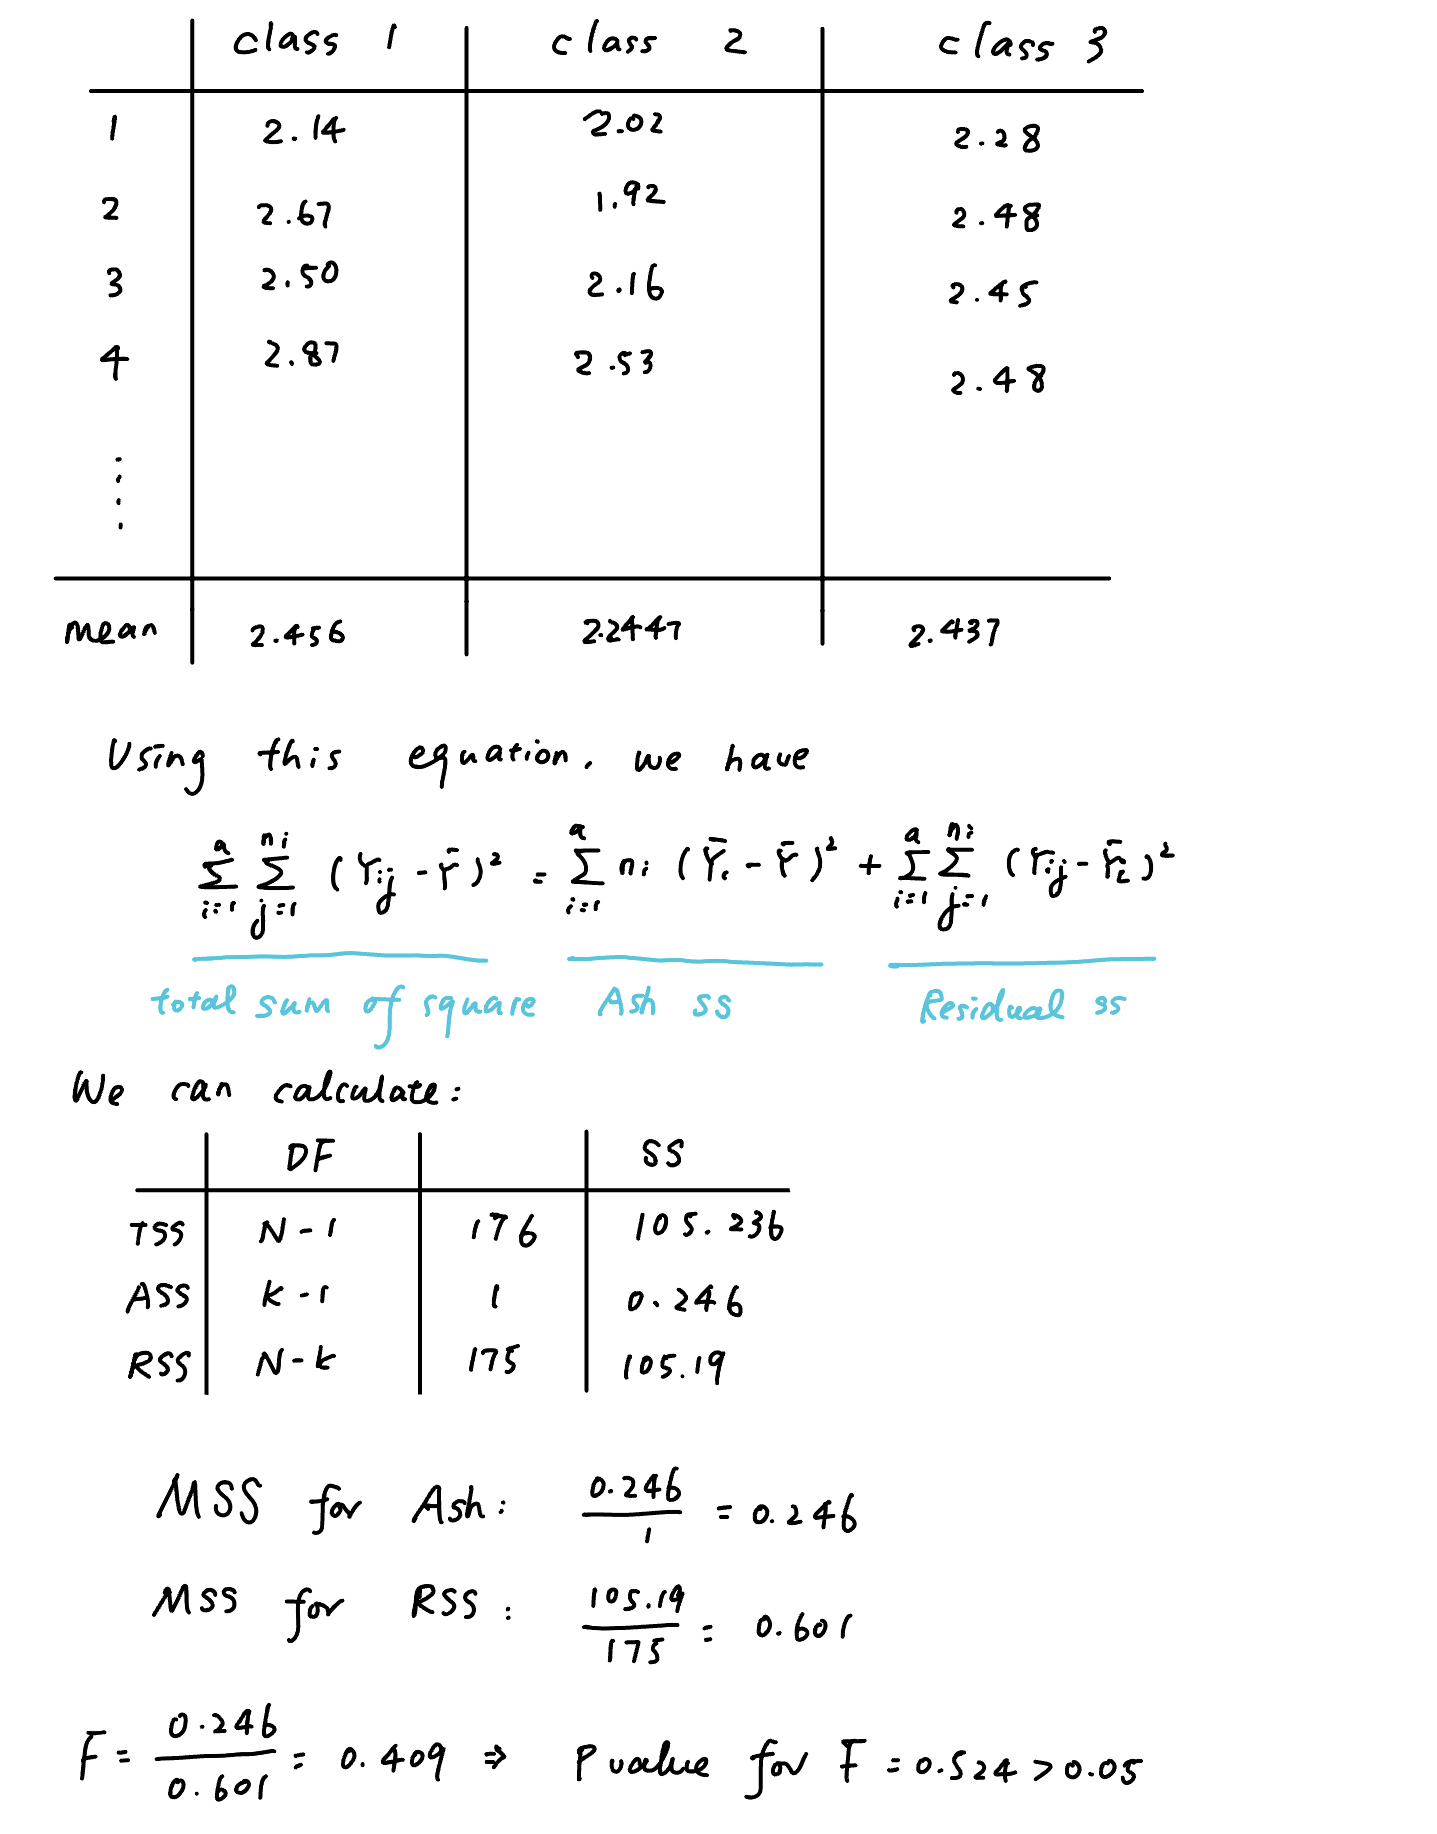 class 1 class 2 class 3
1 2.14 2.02 2.28
2 2.67 1.92 2.48
3 2.50 2.16 2.45
4 2.87 2.53 2.48
⋮
mean 2.456 2.2447 2.437
Using this equation. we have
∑_{i=1}^{a} ∑_{j=1}^{ni} (Yij - Ȳ)² = ∑_{i=1}^{a} ni (Ȳi - Ȳ)² + ∑_{i=1}^{a} ∑_{j=1}^{ni} (Yij - Ȳi)²
total sum of square Ash ss Residual ss
We can calculate:
DF SS
TSS N-1 176 105.236
ASS k-1 1 0.246
RSS N-k 175 105.19
MSS for Ash: 0.246/1 = 0.246
MSS for RSS: 105.19/175 = 0.601
F = 0.246/0.601 = 0.409 ⇒ P value for F = 0.524 > 0.05